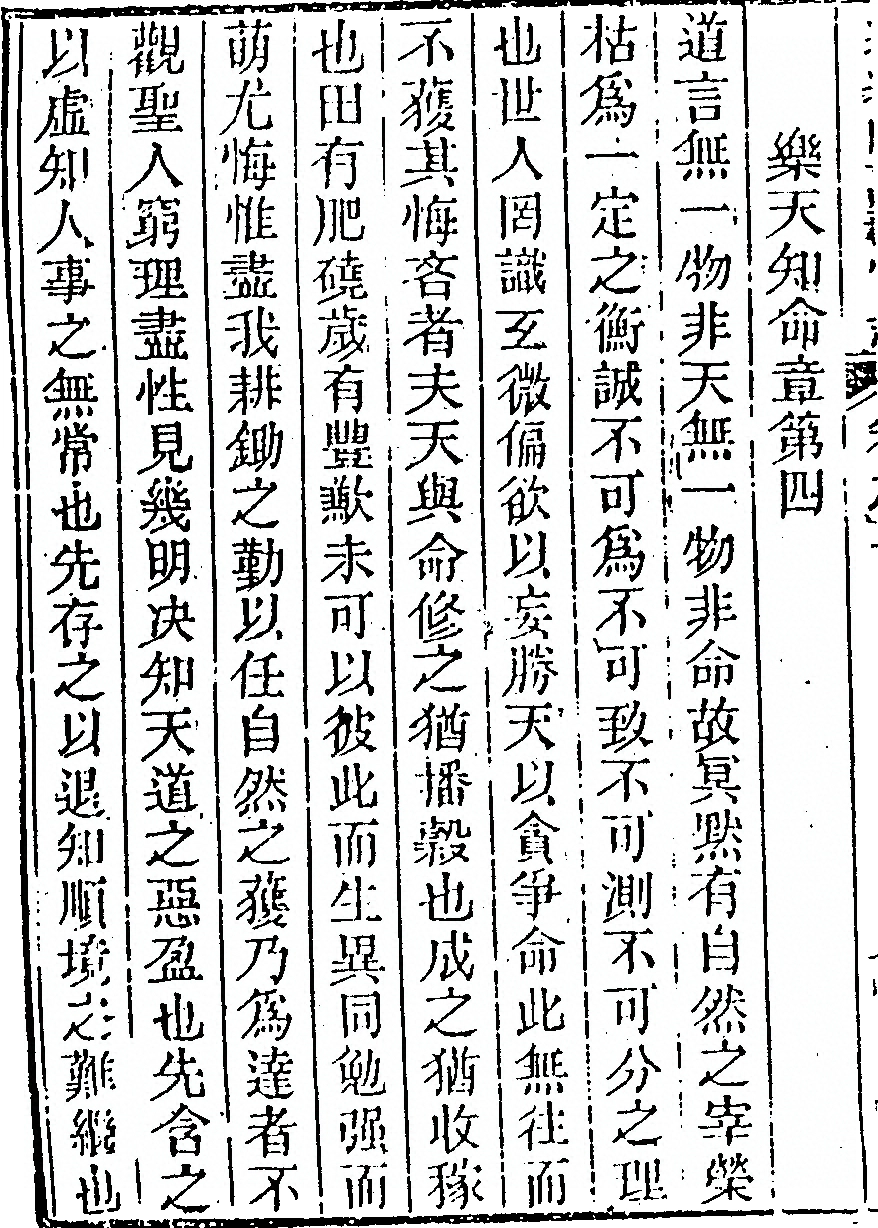 樂天知命章第四
道言無一物非天無一物非命故冥黙有自然之宰榮
枯爲一定之衡誠不可爲不可致不可測不可分之理
也世人罔識玄微偏欲以妄勝天以貪爭命此無往而
不獲其悔吝者夫天與命修之猶播穀也成之猶收稼
也田有肥磽歲有豐歉未可以彼此而生異同勉强而
萌尤悔惟盡我耕鋤之勤以任自然之獲乃爲達者不
觀聖人窮理盡性見幾明决知天道之惡盈也先含之
以虛知人事之無常也先存之以退知順境之難繼也